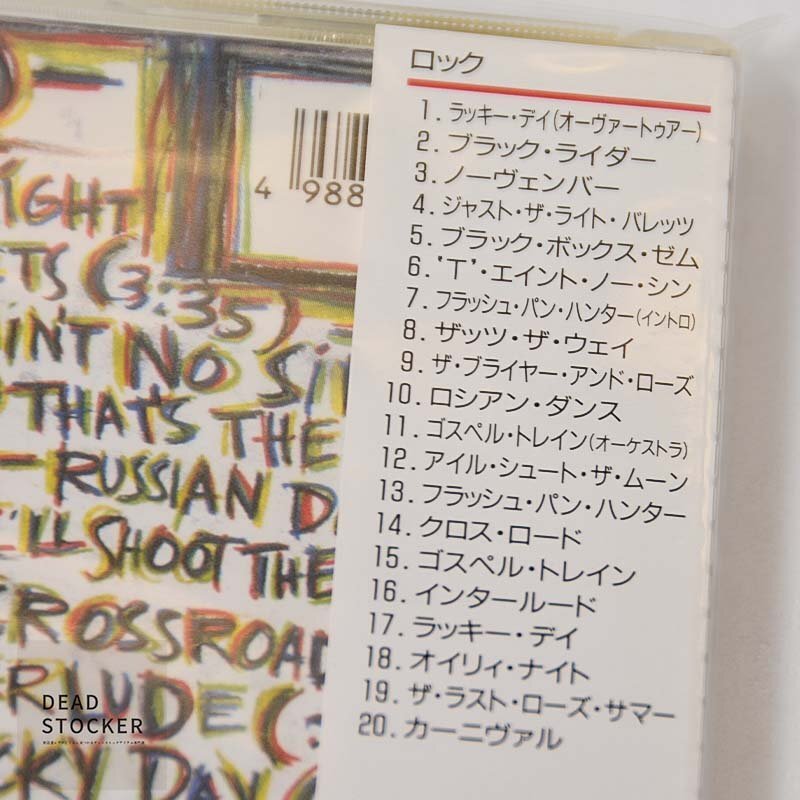 ロック
1. ラッキー・デイ(オーヴァートゥアー)
2. ブラック・ライダー
3. ノーヴェンバー
4. ジャスト・ザ・ライト・バレッツ
5. ブラック・ボックス・ゼム
6. 'T'・エイント・ノー・シン
7. フラッシュ・パン・ハンター(イントロ)
8. ザッツ・ザ・ウェイ
9. ザ・ブライヤー・アンド・ローズ
10. ロシアン・ダンス
11. ゴスペル・トレイン(オーケストラ)
12. アイル・シュート・ザ・ムーン
13. フラッシュ・パン・ハンター
14. クロス・ロード
15. ゴスペル・トレイン
16. インタールード
17. ラッキー・デイ
18. オイリィ・ナイト
19. ザ・ラスト・ローズ・サマー
20. カーニヴァル
4 988
IGHT
ETS (3:35)
AIN'T NO SI
THAT'S THE
RUSSIAN D
I'LL SHOOT THE
CROSSROAD
ERLUDE (
CKY DAY (
DEAD
STOCKER